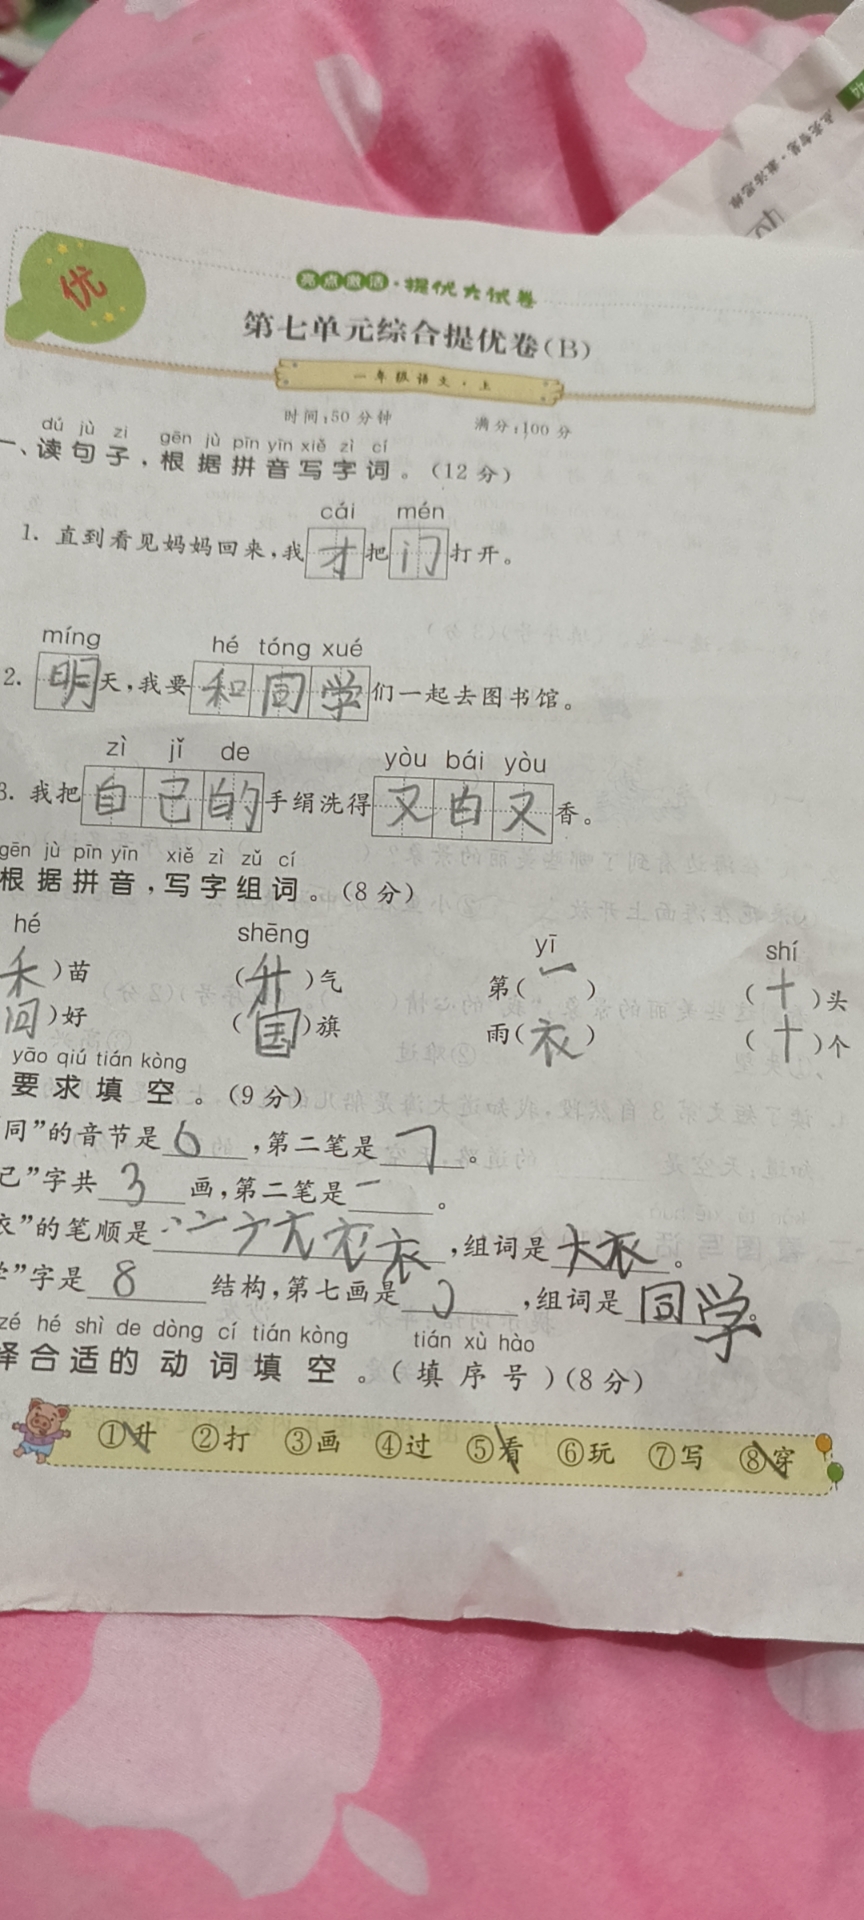 优
亮点激活·提优大试卷
第七单元综合提优卷(B)
一年级语文·上
时间:50分钟 满分:100分
dú jù zi gēn jù pīn yīn xiě zì cí
一、读句子,根据拼音写字词。(12分)
cái mén
1. 直到看见妈妈回来,我才把门打开。
míng hé tóng xué
2. 明天,我要和同学们一起去图书馆。
zì jǐ de yòu bái yòu
3. 我把自己的手绢洗得又白又香。
gēn jù pīn yīn xiě zì zǔ cí
根据拼音,写字组词。(8分)
hé shēng yī shí
禾)苗 (升)气 第(一) (十)头
)好 (国)旗 雨(衣) (十)个
yāo qiú tián kòng
要求填空。(9分)
同”的音节是6,第二笔是㇆。
己”字共3画,第二笔是一。
衣”的笔顺是丶亠,组词是大衣。
学”字是8结构,第七画是,组词是同学。
zé hé shì de dòng cí tián kòng tián xù hào
择合适的动词填空。(填序号)(8分)
①升 ②打 ③画 ④过 ⑤看 ⑥玩 ⑦写 ⑧穿